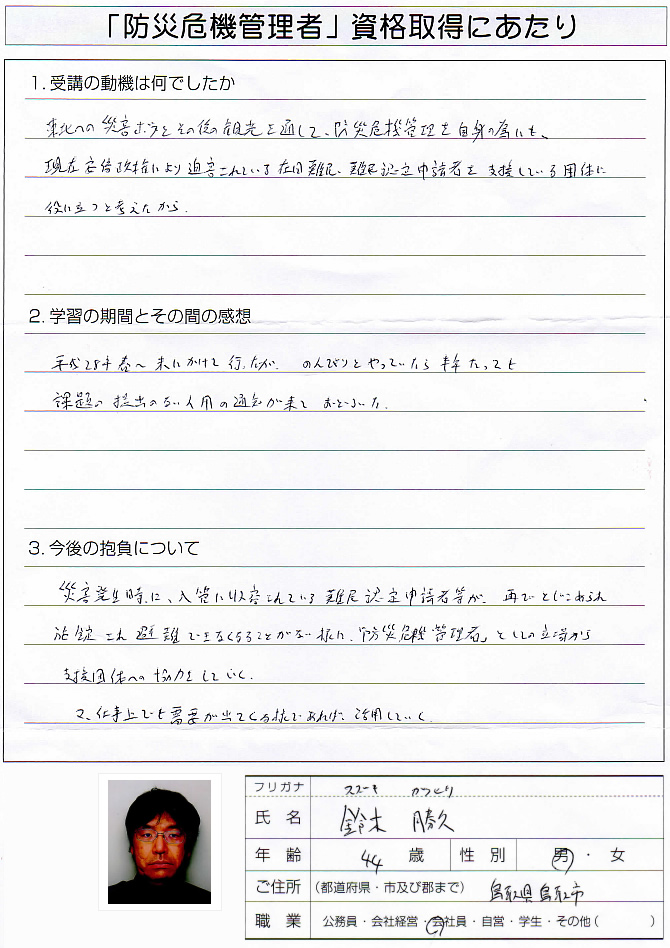 「防災危機管理者」資格取得にあたり
1. 受講の動機は何でしたか
東北への災害ボラとその後の観光を通して、防災危機管理を自身の為にも、
現在安倍政権により迫害されている在日難民、難民認定申請者を支援している団体に
役に立つと考えたから.
2. 学習の期間とその間の感想
平成28年春〜末にかけて行ったが. のんびりとやっていたら 年たっても
課題の提出のない人用の通知が来ておどろいた.
3. 今後の抱負について
災害発生時に、入管に収容されている難民認定申請者等が、再びとじこめられ
施錠され避難できなくなることがない様に、「防災危機管理者」としての立場から
支援団体への協力をしていく.
又、仕事上でも需要が出てくる様であれば、活用していく.
フリガナ スズキ かつとり
氏 名 鈴木 勝久
年 齢 44 歳 性 別 男・女
ご住所 （都道府県・市及び郡まで） 鳥取県鳥取市
職 業 公務員・会社経営・会社員・自営・学生・その他（ ）